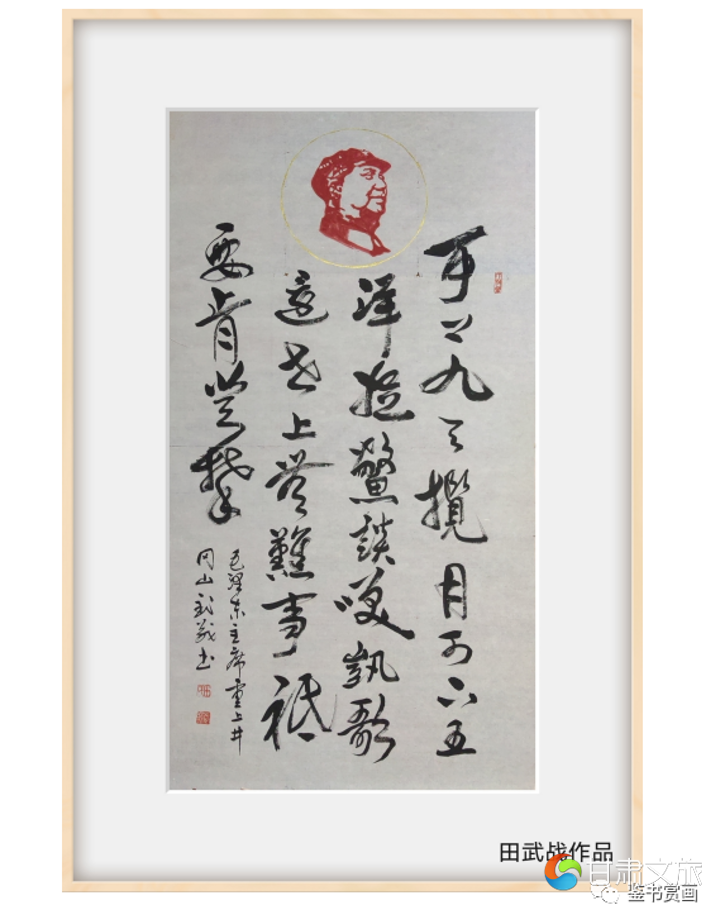 可上九天攬月可下五
洋捉鱉談咲凱歌
還世上無難事祗
要肯登攀
毛泽东主席重上井
冈山武战书
田武战作品
甘肃文旅
鉴书赏画